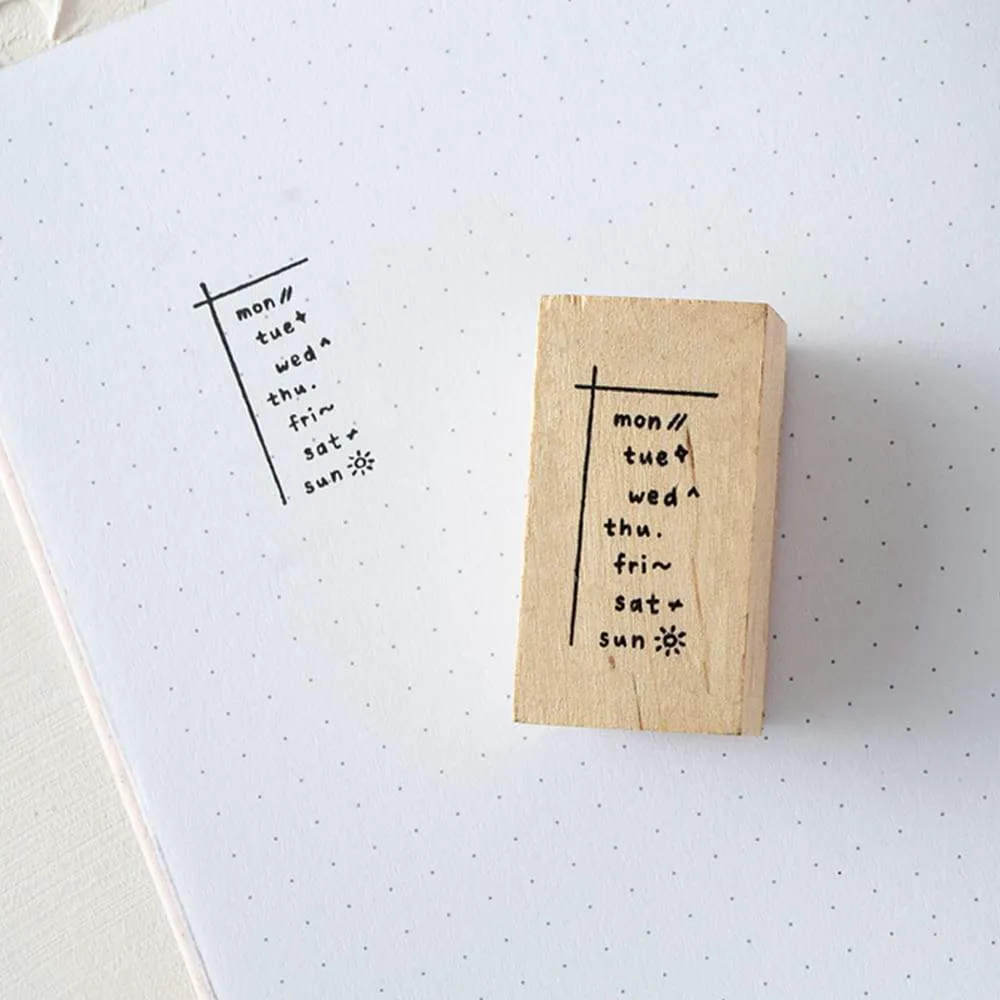 mon //
tue
wed ^
thu.
fri~
sat
sun
mon //
tue
wed ^
thu.
fri~
sat
sun